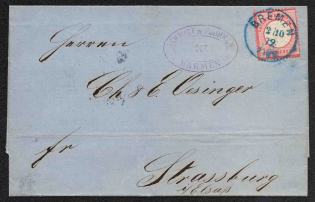 BREMEN
2 10
72
OCT
BARMEN
Herren
Ch & E Oesinger
fr
Strassburg
i/Elsaß